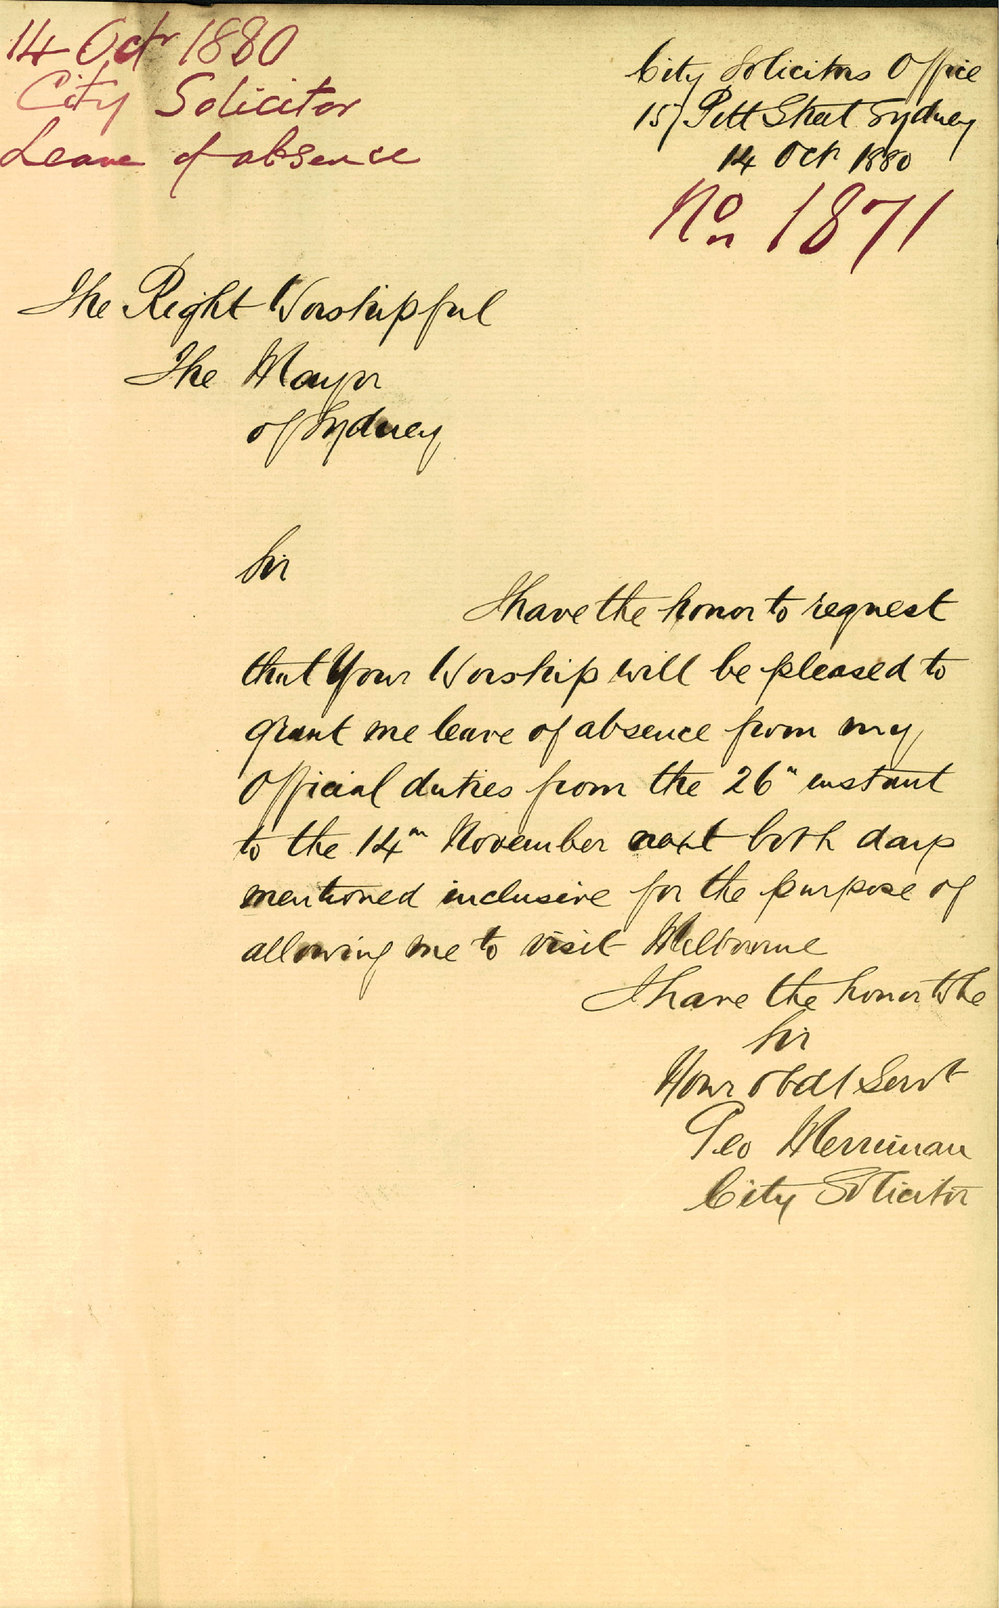 14 Octr 1880
City Solicitor
Leave of absence
City Solicitors Office
157 Pitt Street Sydney
14 Oct 1880
No. 1871
The Right Worshipful
The Mayor
of Sydney
Sir
I have the honor to request
that Your Worship will be pleased to
grant me leave of absence from my
Official duties from the 26th instant
to the 14th November next both days
mentioned inclusive for the purpose of
allowing me to visit Melbourne
I have the honor to be
Sir
Your obdt Servt
Geo Merriman
City Solicitor